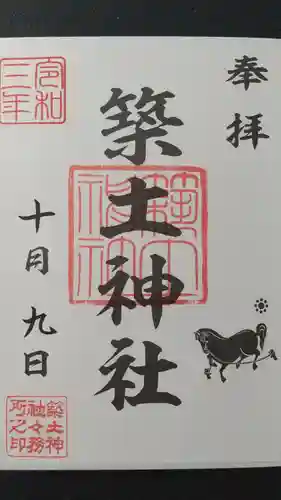 奉拝
築土神社
令和三年
十月九日
築土神社
築土神
社々務
所之印